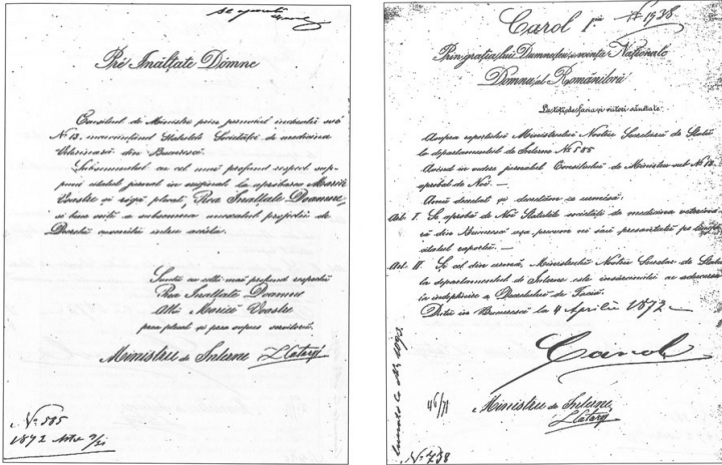 Pré Inălțate Dómne
Consiliul de Ministre prin jurnalul încheiat sub
No 13. încuviințând Statutele Societăței de medicina
Veterinară din Bucuresci.
Subsemnatul cu cel mai profund respect sup-
puiu citatul jurnal în original la aprobarea Mariei
Vostre și rógă plecat, Prea Inalțate Doamne,
să bine-voiți a subsemna anexatul projectu de
Decretu
Sunt cu cellu mai profund respectu
Prea Inalțate Doamne
Alu Mariei Voastre
prea plecat și prea supus servitoriu.
Ministru de Interne L. Catargi
No 585
1872
Carol Iu
No 1938
Prin grația lui Dumnedeu și voința Națională
Domnu al Românilorŭ
La toți de façia și viitori sănătate.
Asupra raportului Ministrului Nostru Secretaru de Statu
la departamentul de Interne No 585
Avênd in vedere jurnalul Consiliului de Miniștri sub No 13.
aprobat de Noi. —
Amu decretat și decretăm ce urmeză:
Art. I. Se aprobă de Noi Statutele societăței de medicina veterina-
ră din Bucuresci așa precum ni sînt presentate pe lângă
citatul raportu. —
Art. II. Și cel din urmă, Ministrulu Nostru Secretar de Statu
la departamentul de Interne este însărcinatu cu aducerea
in indeplinire a Decretului de façia.
Datu in Bucuresci la 4 Aprilie 1872 —
Carol
Ministru de Interne,
L. Catargi
46/71
No 738